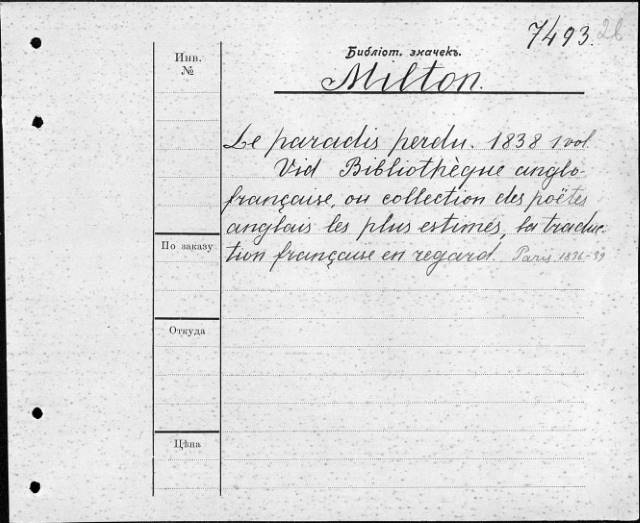 7493. 26
Инв.
№
Библіот. значекъ.
Milton.
Le paradis perdu. 1838 1 vol.
Vid Bibliothèque anglo-
française, ou collection des poëtes
anglais les plus estimés, la traduc-
tion française en regard. Paris. 1836-39
По заказу
Откуда
Цѣна